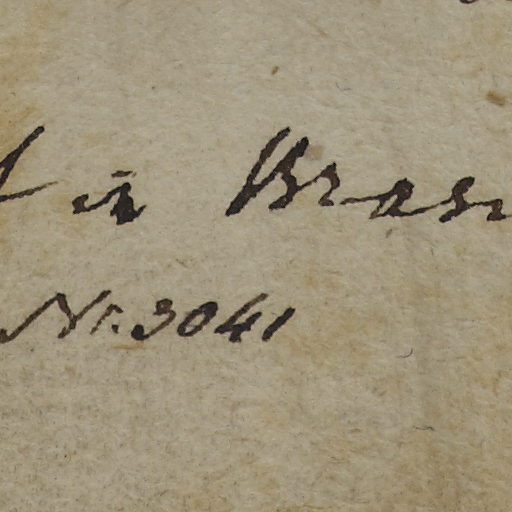 in Bras
Nr. 3041